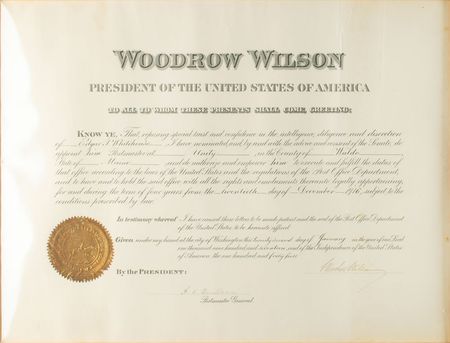 WOODROW WILSON
PRESIDENT OF THE UNITED STATES OF AMERICA
TO ALL TO WHOM THESE PRESENTS SHALL COME, GREETING:
KNOW YE, That, reposing special trust and confidence in the intelligence, diligence and discretion
of Edgar F. Whitehouse, I have nominated, and, by and with the advice and consent of the Senate, do
appoint him Postmaster at Unity, in the County of Waldo,
State of Maine, and do authorize and empower him to execute and fulfill the duties of
that office according to the laws of the United States and the regulations of the Post Office Department,
and to have and to hold the said office with all the rights and emoluments thereunto legally appertaining,
for and during the term of four years from the twentieth day of December, 1916, subject to the
conditions prescribed by law.
In testimony whereof I have caused these letters to be made patent and the seal of the Post Office Department
of the United States to be hereunto affixed.
Given under my hand at the city of Washington this day of January in the year of our Lord
one thousand nine hundred and seventeen and of the Independence of the United States
of America the one hundred and forty first
By the PRESIDENT:
Woodrow Wilson
Postmaster General.